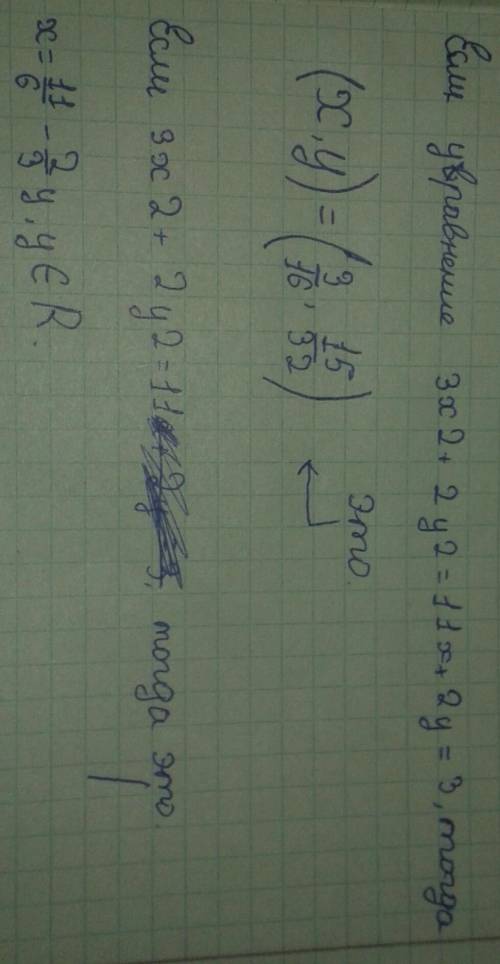 Если уравнение 3x2 + 2y2 = 11x + 2y = 3, тогда
это.
(x, y) = (3/16, 15/32)
Если 3x2 + 2y2 = 11, тогда это.
x = 11/6 - 2/3 y, y ∈ R.